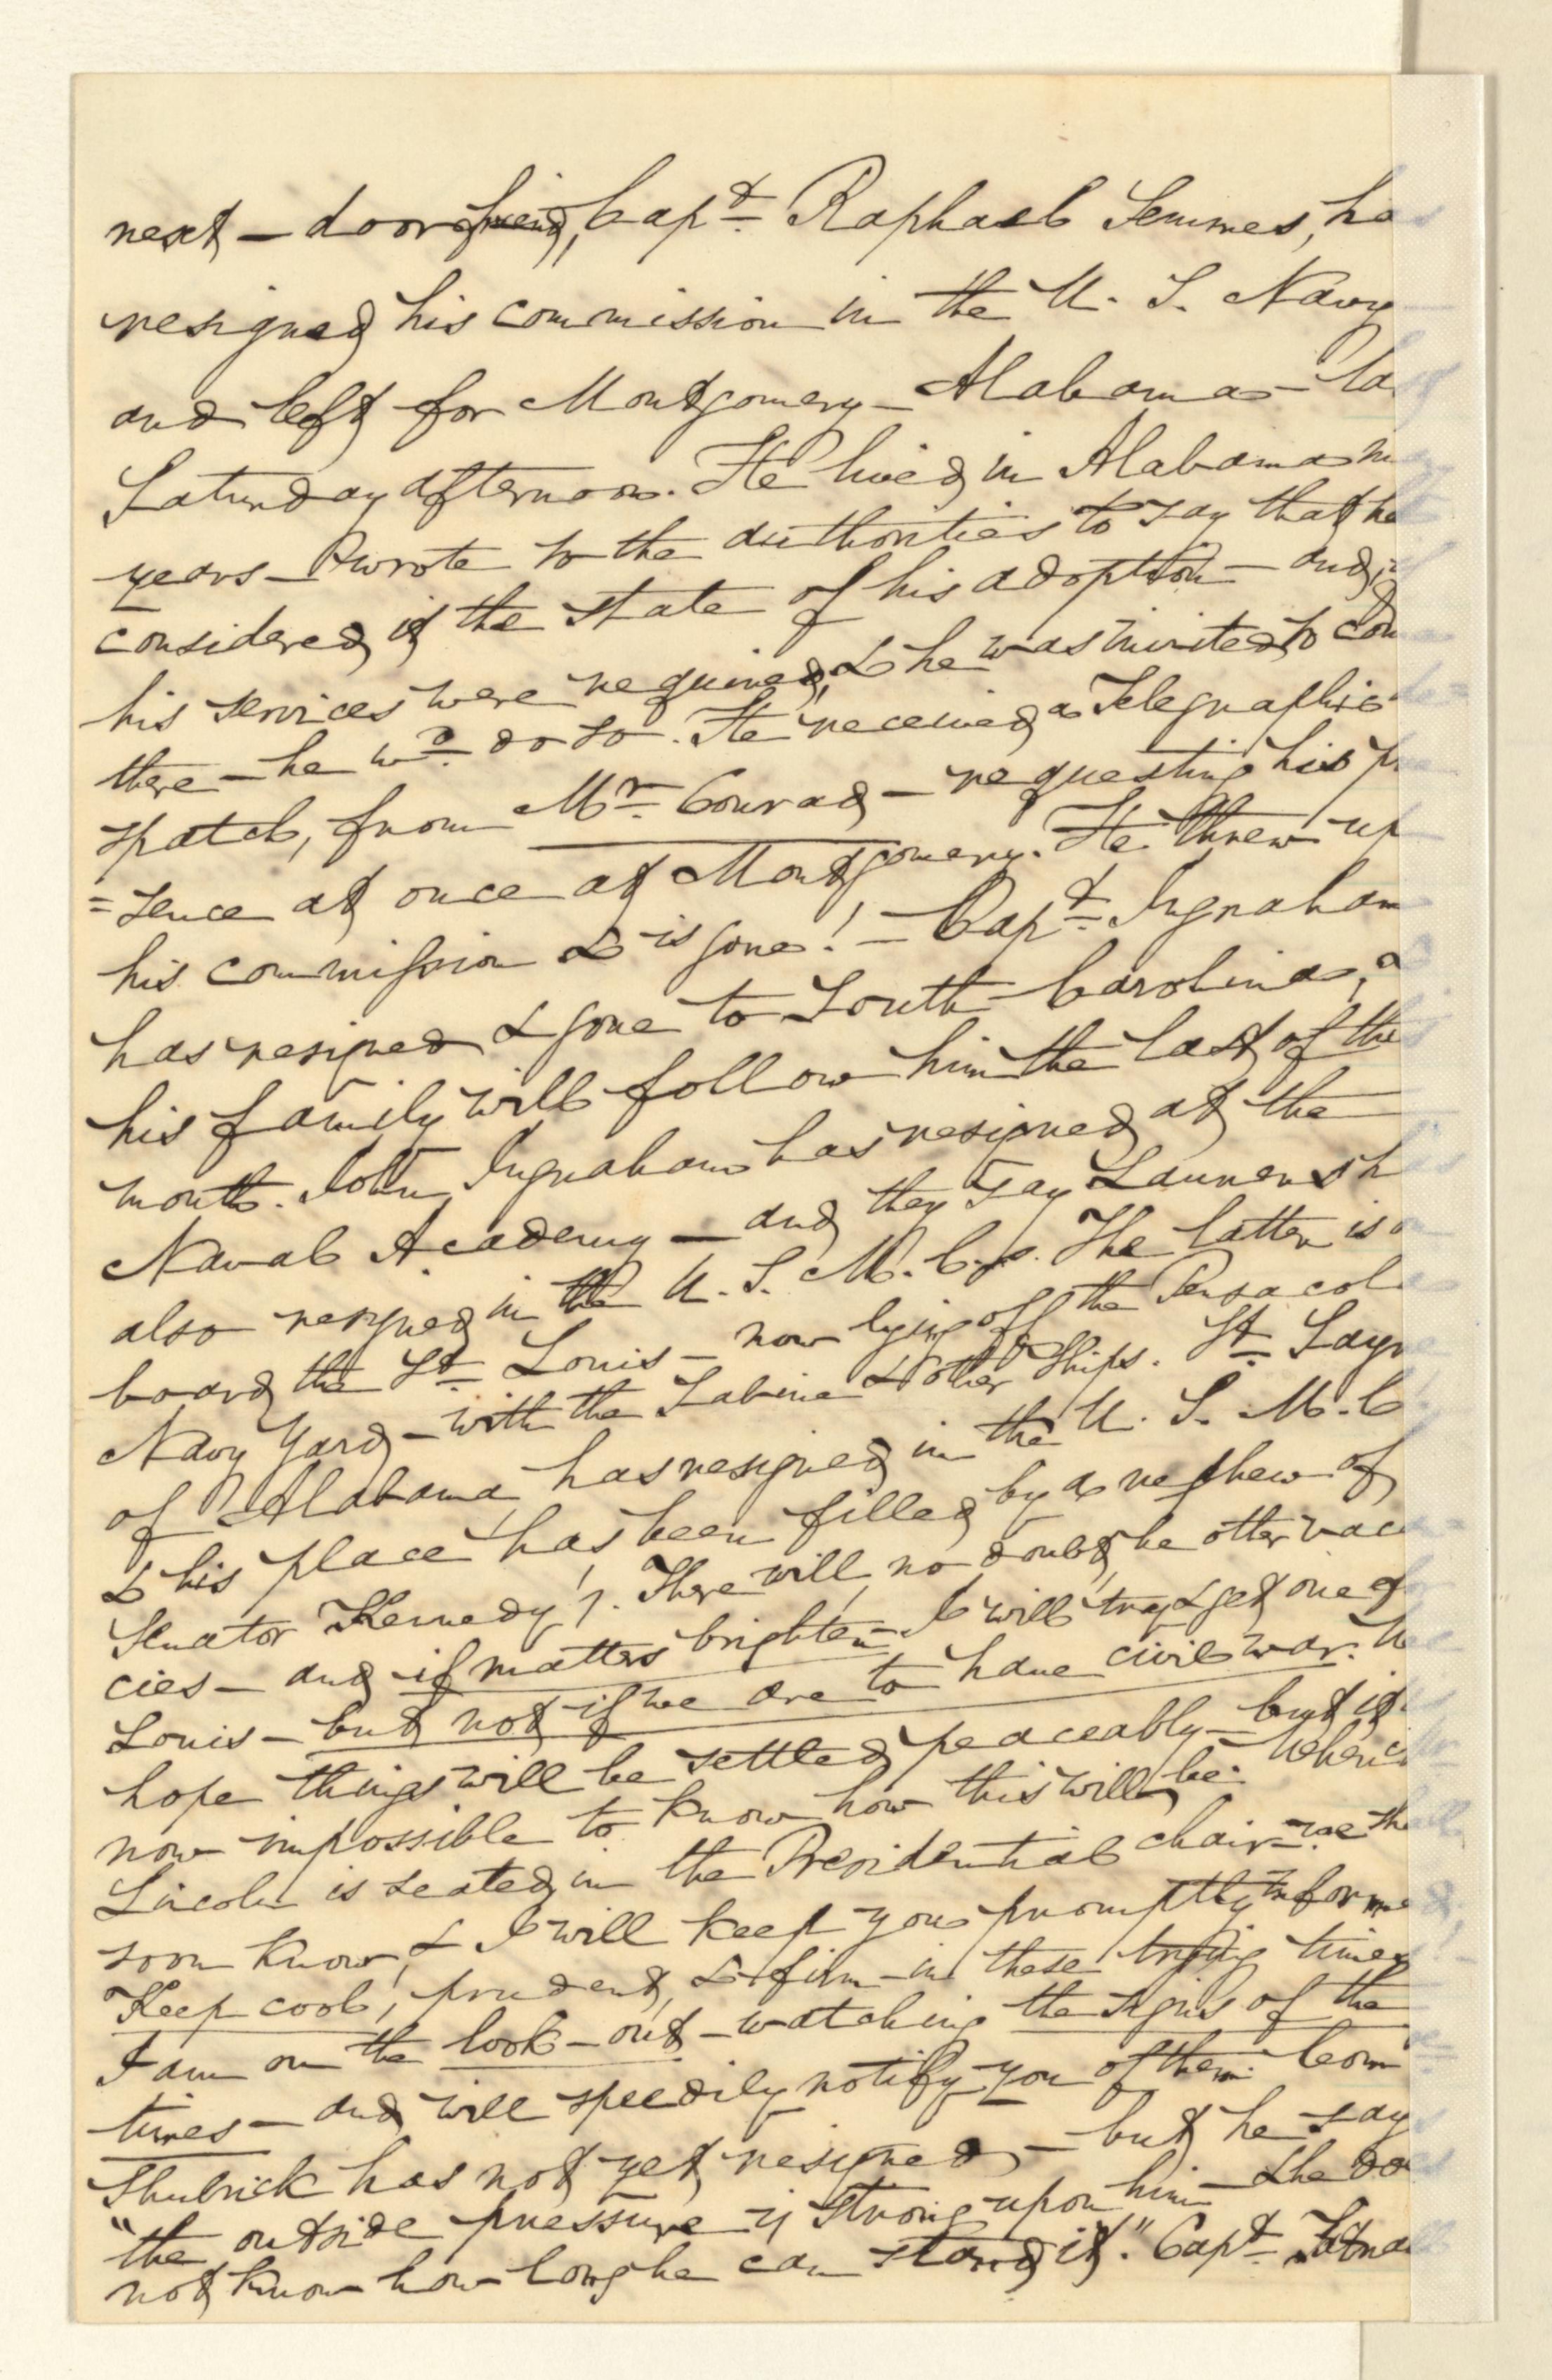 next-door friend, Capt. Raphael Semmes, has
resigned his commission in the U. S. Navy
and left for Montgomery - Alabama - last
Saturday afternoon. He lived in Alabama
years - & wrote to the authorities to say that he
considered it the state of his adoption - and, if
his services were required, & he was invited to come
there - he wd. do so. He received a Telegraphic
spatch, from Mr. Conrad - requesting his pre
=sence at once at Montgomery. He threw up
his commission & is gone! - Capt. Ingraham
has resigned & gone to South Carolina, &
his family will follow him the last of the
month. John Ingraham has resigned at the
Naval Academy - and they say Laurens has
also resigned in the U. S. M. Cps. The latter is on
board the St. Louis - now lying off the Pensacola
Navy Yard - with the Sabine & other ships. Lt. Sayre
of Alabama, has resigned in the U. S. M. C.
& his place has been filled by a nephew of
Senator Kennedy!. There will, no doubt, be other vacan
cies - and if matters brighten - I will try & get one for
Louis - but not if we are to have civil war. We
hope things will be settled peaceably - but it is
now impossible to know how this will be. When
Lincoln is seated in the Presidential chair - we shall
soon know, & I will keep you promptly informed,
Keep cool, prudent, & firm - in these trying times -
I am on the look-out - watching the signs of the
times - and will speedily notify you of them. Com
Shubrick has not yet resigned, - but he says
"the outside pressure is strong upon him - & he does
not know how long he can stand it." Capt. Tatnall